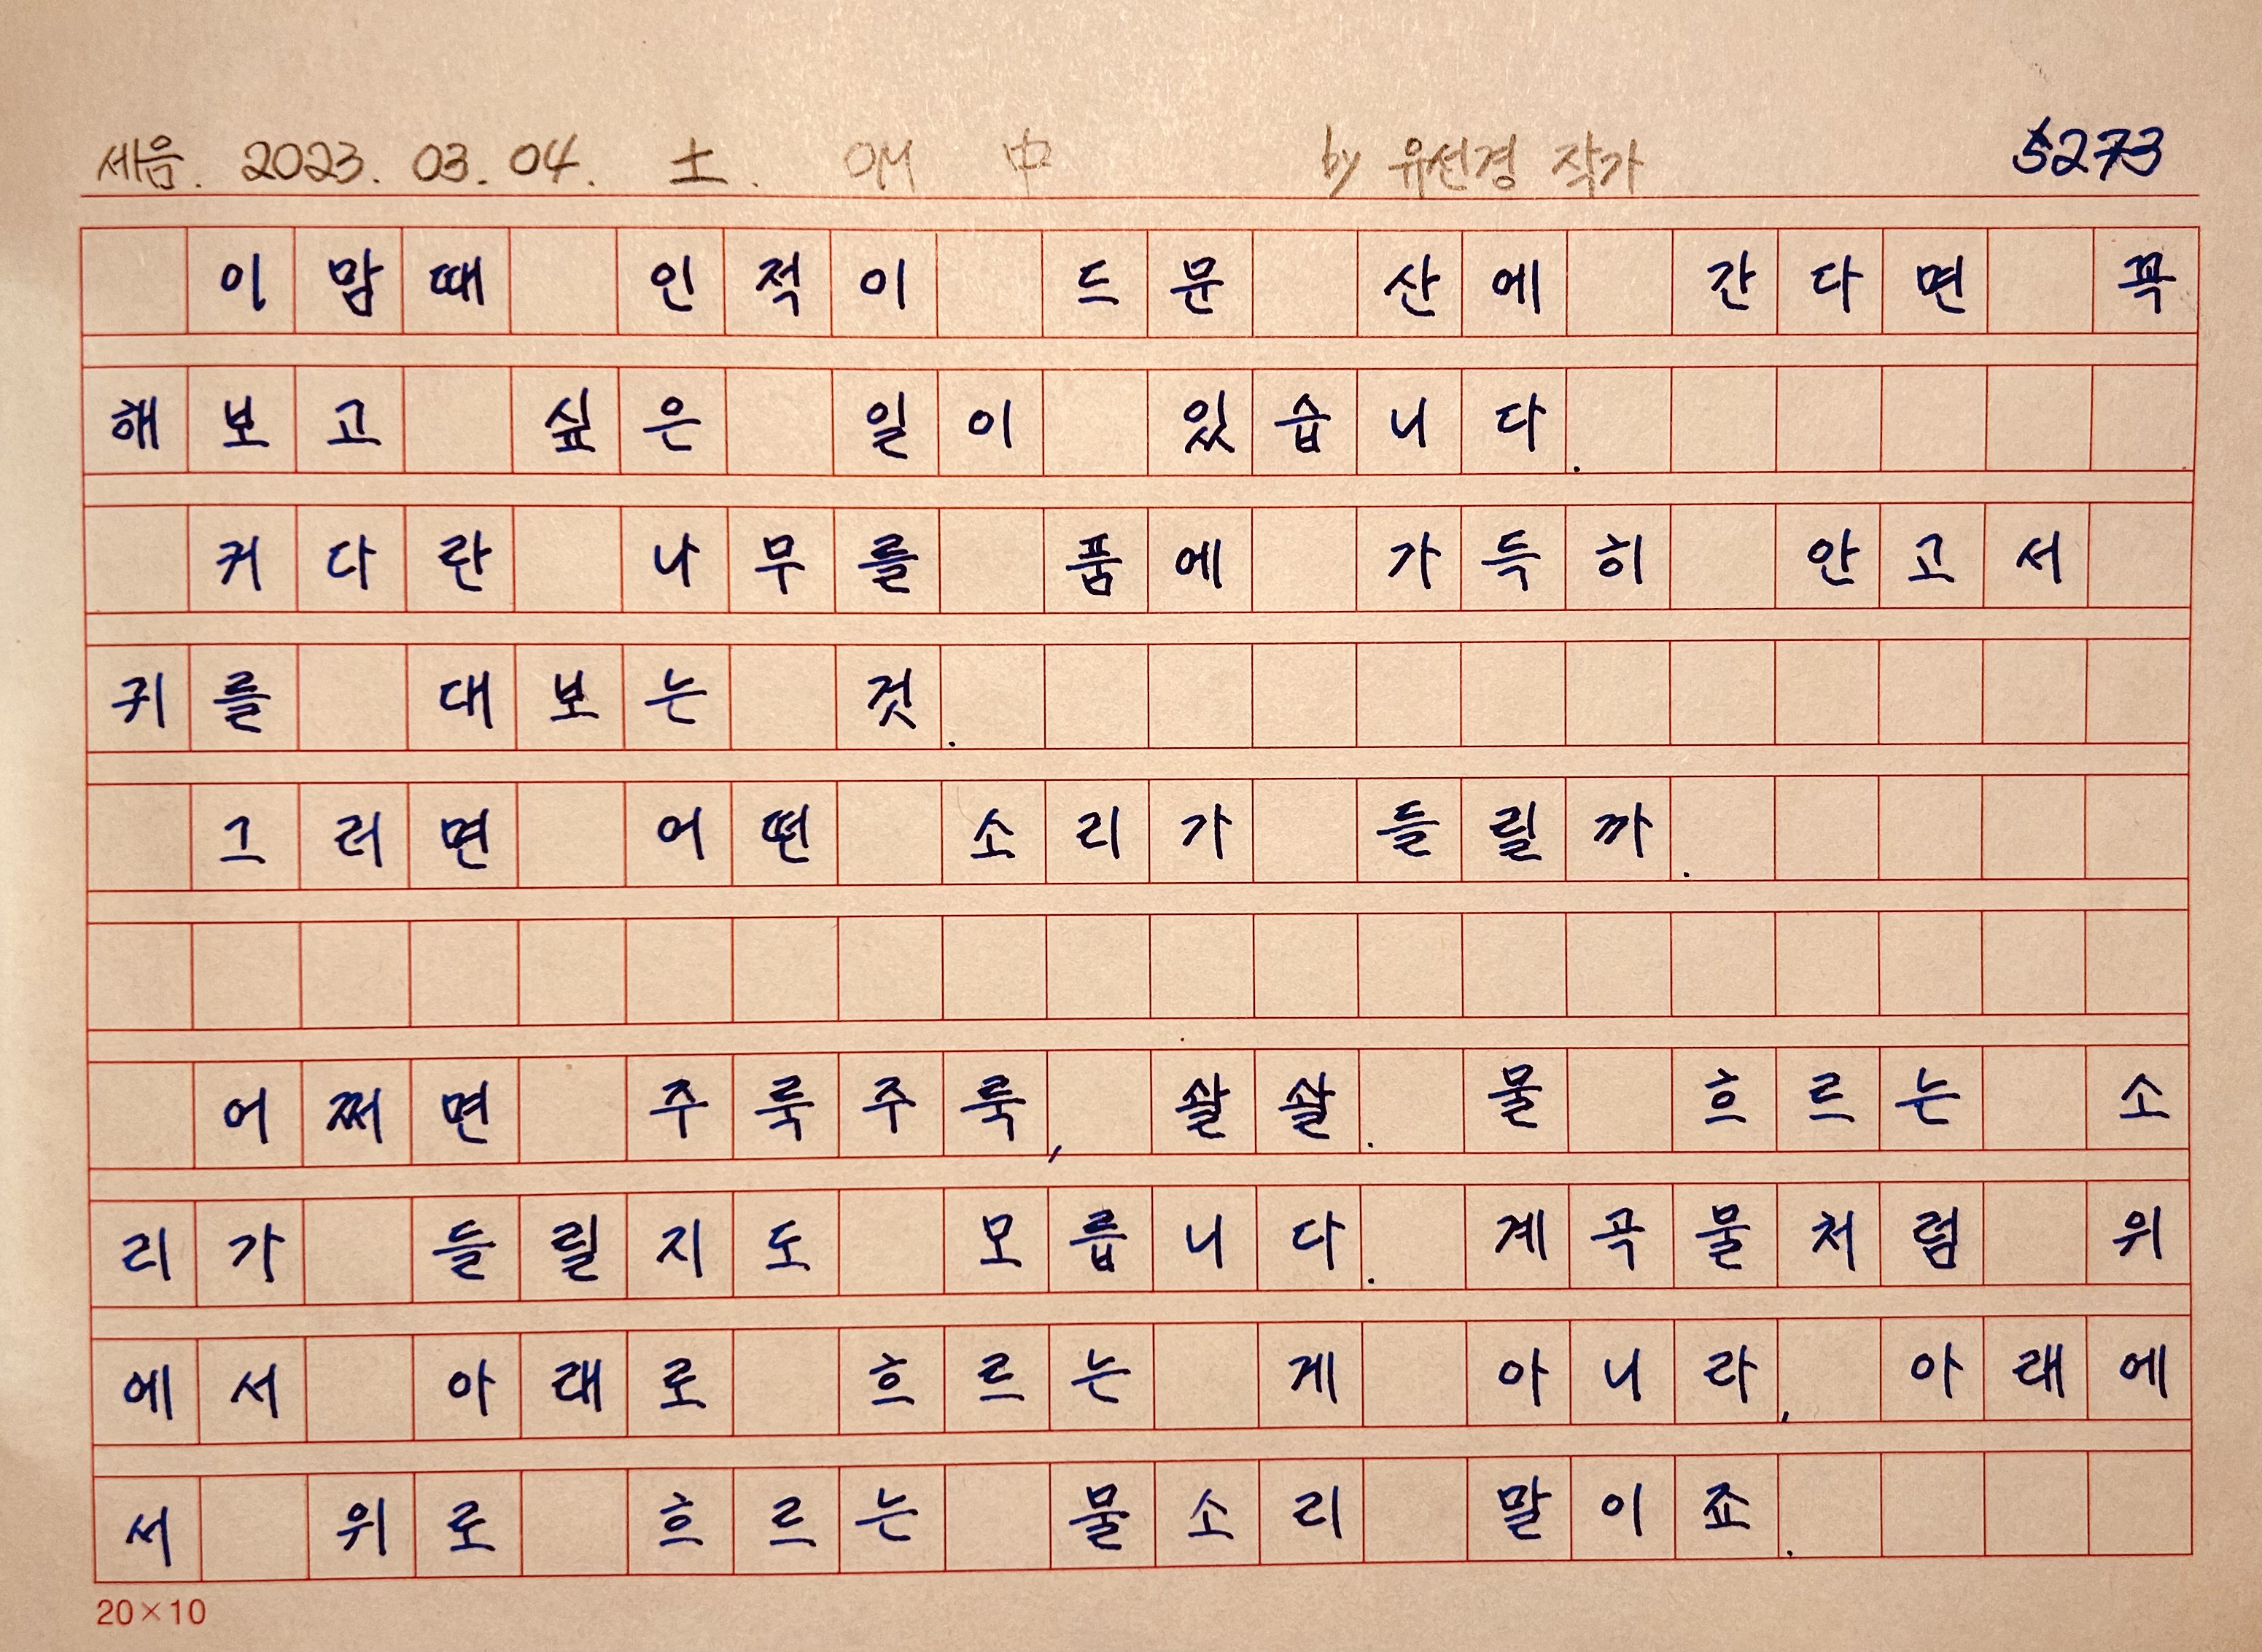 세음. 2023. 03. 04. 土. OM 中 by 유선경 작가 5273
이맘때 인적이 드문 산에 간다면 꼭
해보고 싶은 일이 있습니다.
커다란 나무를 품에 가득히 안고서
귀를 대보는 것.
그러면 어떤 소리가 들릴까.
어쩌면 주룩주룩, 솰솰. 물 흐르는 소
리가 들릴지도 모릅니다. 계곡물처럼 위
에서 아래로 흐르는 게 아니라, 아래에
서 위로 흐르는 물소리 말이죠.
20×10